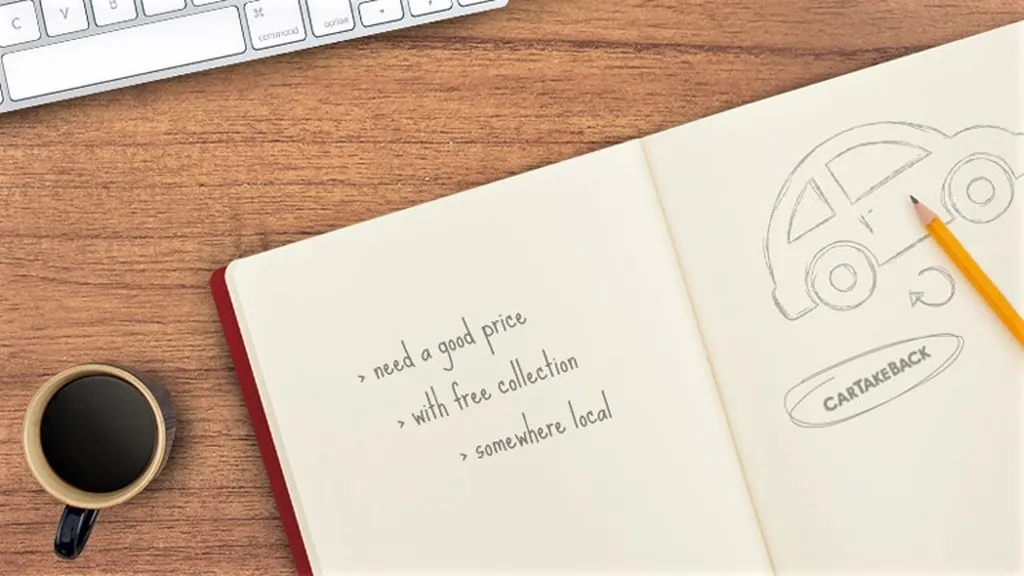 C V B
⌘
command
option
> need a good price
> with free collection
> somewhere local
CARTAKEBACK